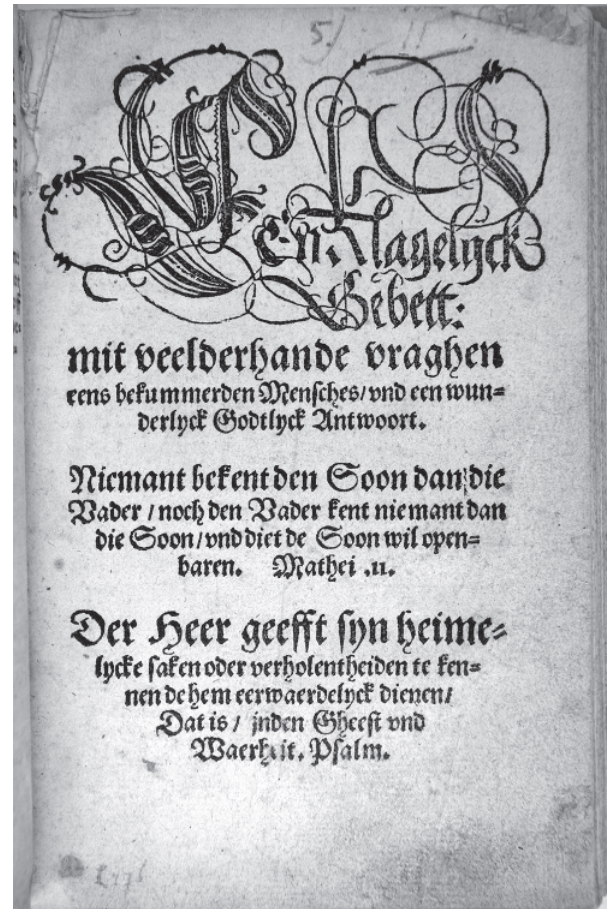 5.
En Klagelyck
Gebett:
mit veelderhande vraghen
eens bekummerden Mensches/ vnd een wun=
derlyck Godtlyck Antwoort.
Niemant bekent den Soon dan die
Vader / noch den Vader kent niemant dan
die Soon/ vnd diet de Soon wil open=
baren. Mathei .11.
Der Heer geefft syn heime=
lycke saken oder verholentheiden te ken=
nen de hem eerwaerdelyck dienen/
Dat is / jnden Gheest vnd
Waerheit. Psalm.